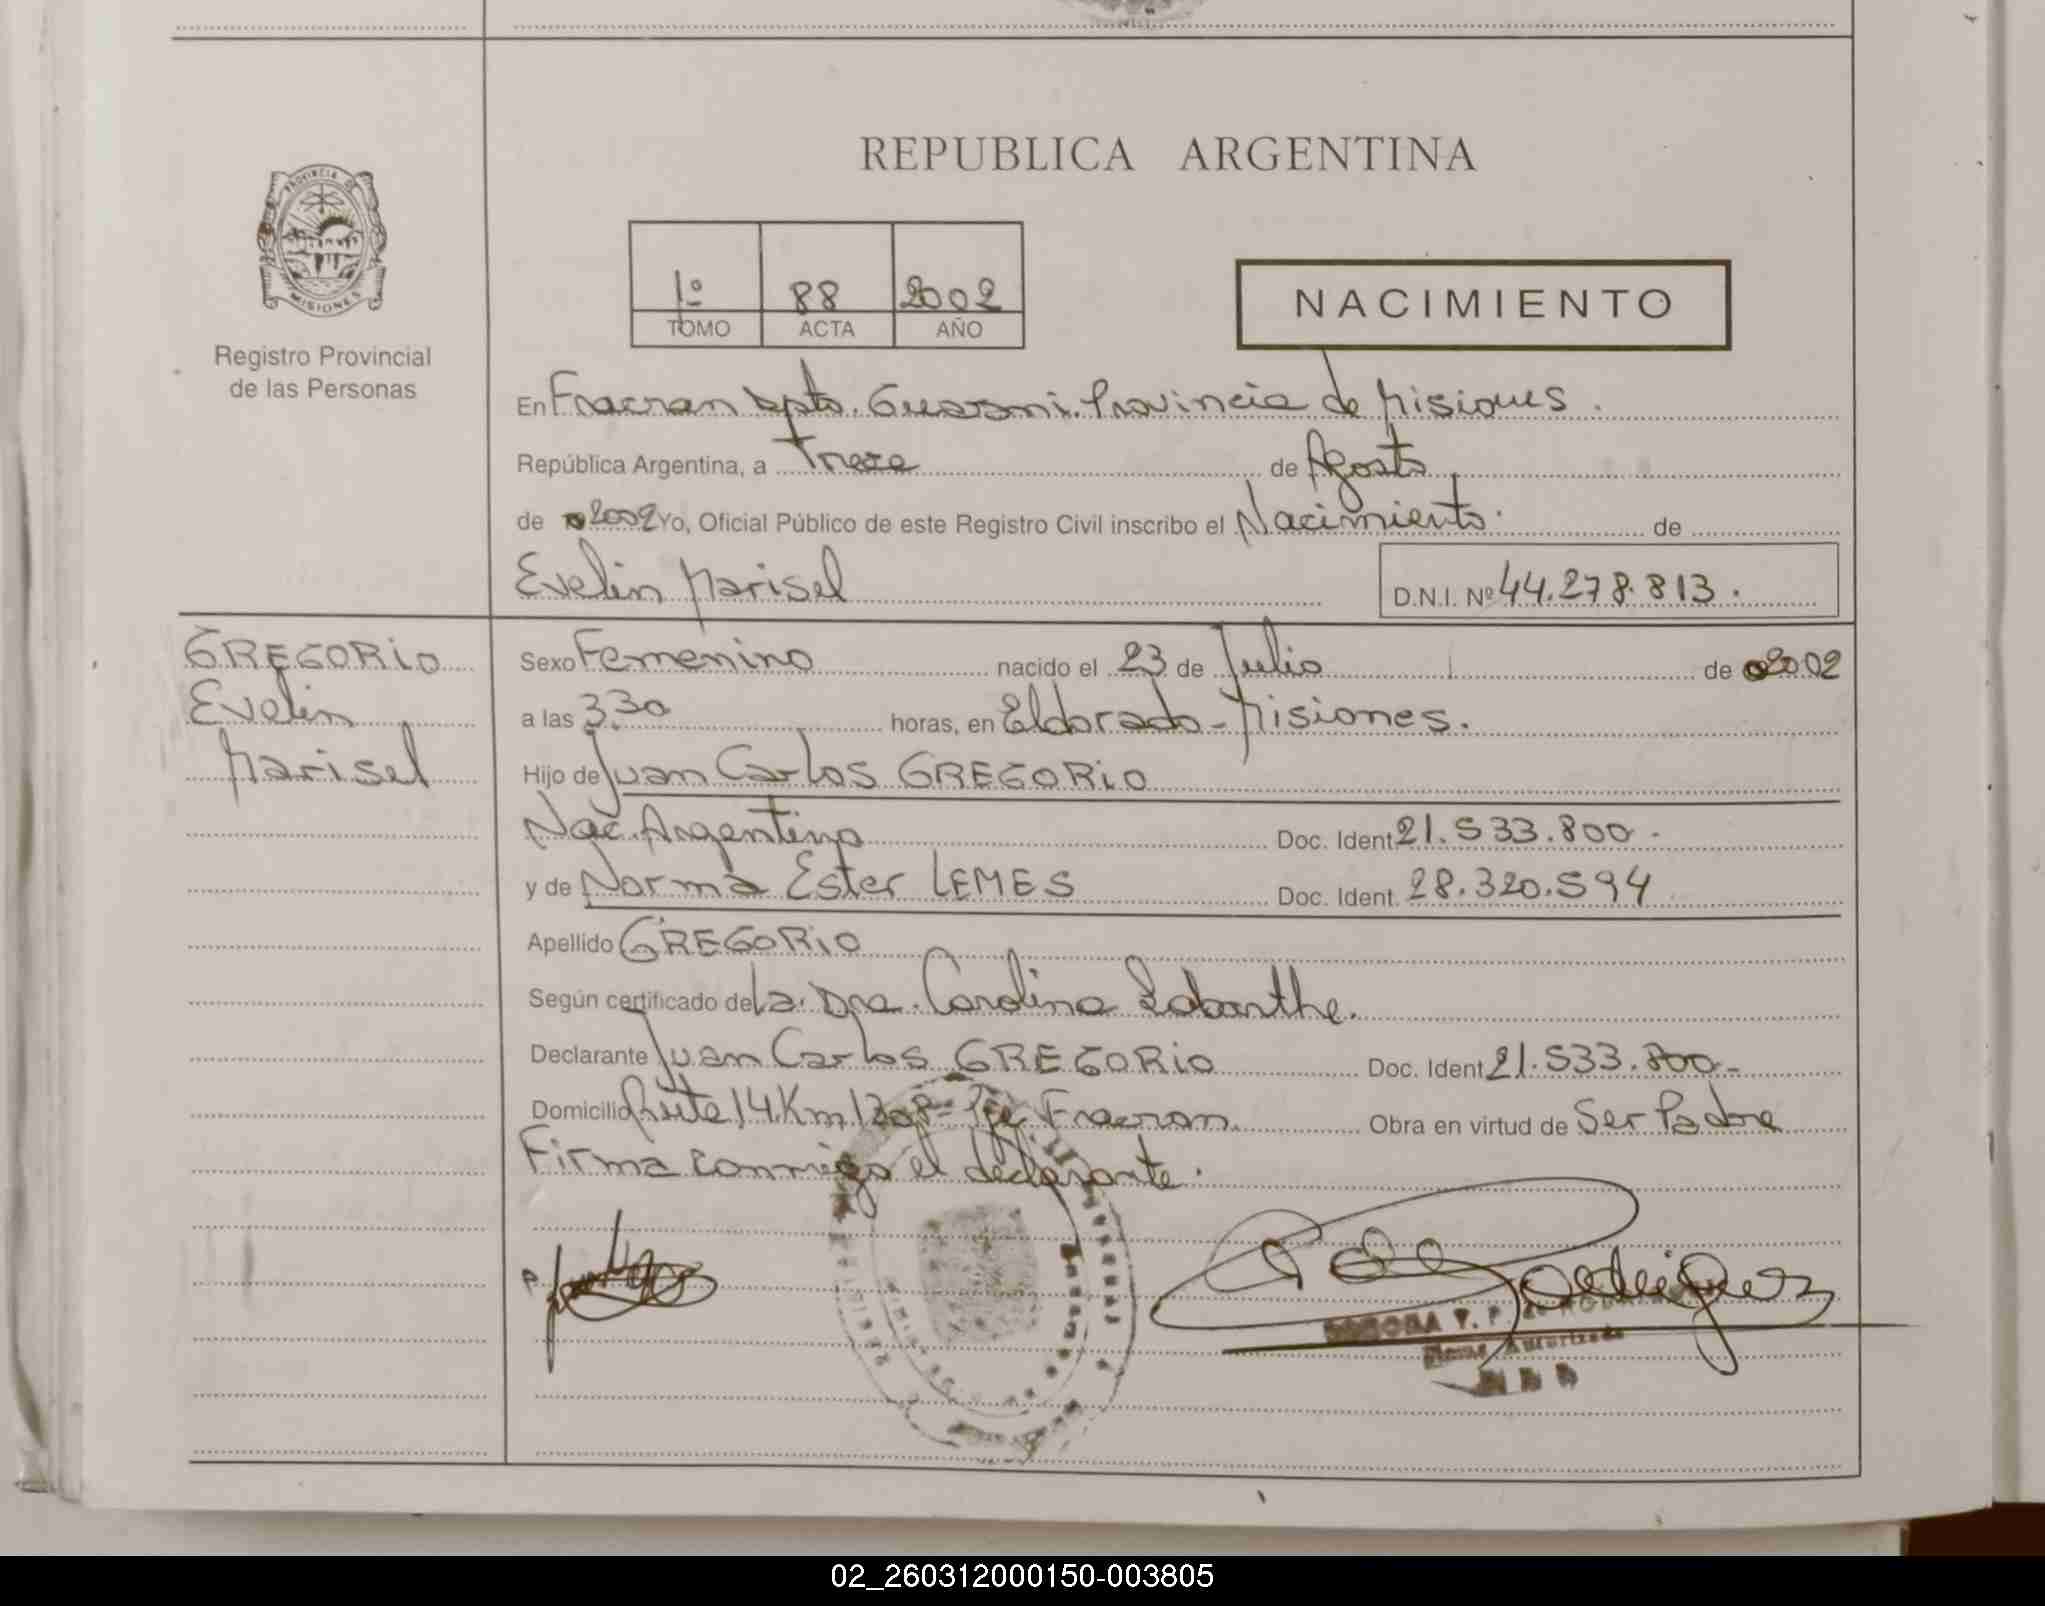 REPUBLICA ARGENTINA
PROVINCIA DE
MISIONES
Registro Provincial
de las Personas
1º 88 2002
TOMO ACTA AÑO
NACIMIENTO
En Fracran Dpto. Guarani. Provincia de Misiones.
República Argentina, a Trece de Agosto
de 2002 Yo, Oficial Público de este Registro Civil inscribo el Nacimiento. de
Evelin Marisel D.N.I. Nº 44.278.813.
GREGORIO
Evelin
Marisel
Sexo Femenino nacido el 23 de Julio de 2002
a las 3.30 horas, en Eldorado - Misiones.
Hijo de Juan Carlos GREGORIO
Nac. Argentino Doc. Ident 21.533.800.
y de Norma Ester LEMES Doc. Ident. 28.320.594
Apellido GREGORIO
Según certificado de La. Dra. Carolina Labarthe.
Declarante Juan Carlos GREGORIO Doc. Ident 21.533.800-
Domicilio Ruta 14 Km 1208- Pje Fracran. Obra en virtud de Ser Padre
Firma conmigo el declarante.
Rodriguez
02_260312000150-003805